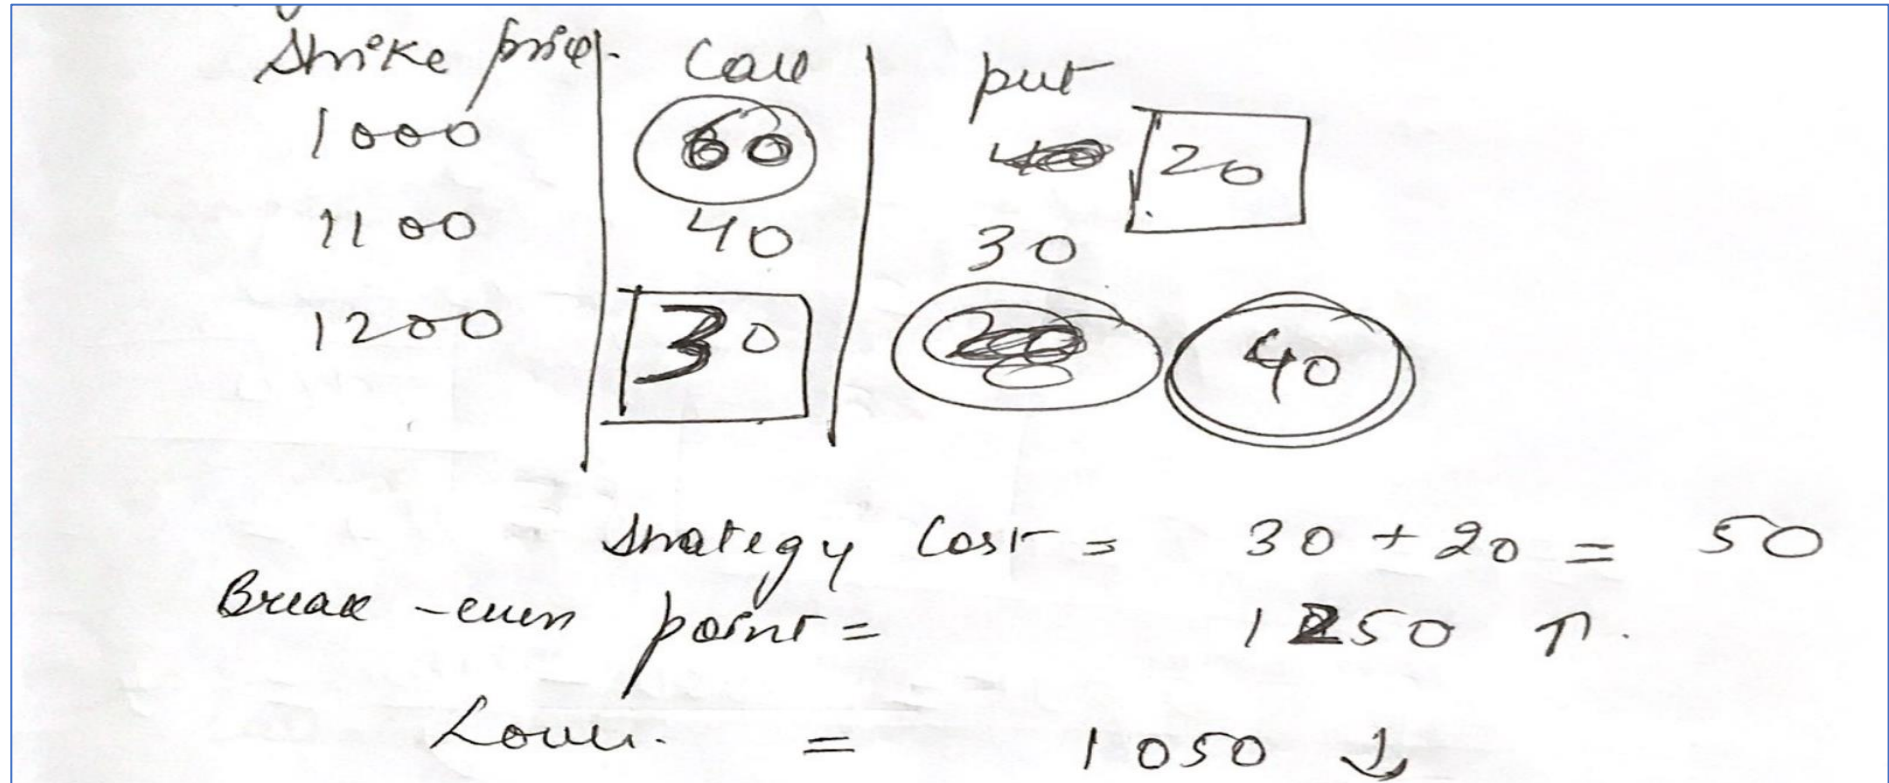 Strike price. Call put
1000 60 20
1100 40 30
1200 30 40
Strategy Cost = 30 + 20 = 50
Break-even point = 1250 ↑.
Lower. = 1050 ↓